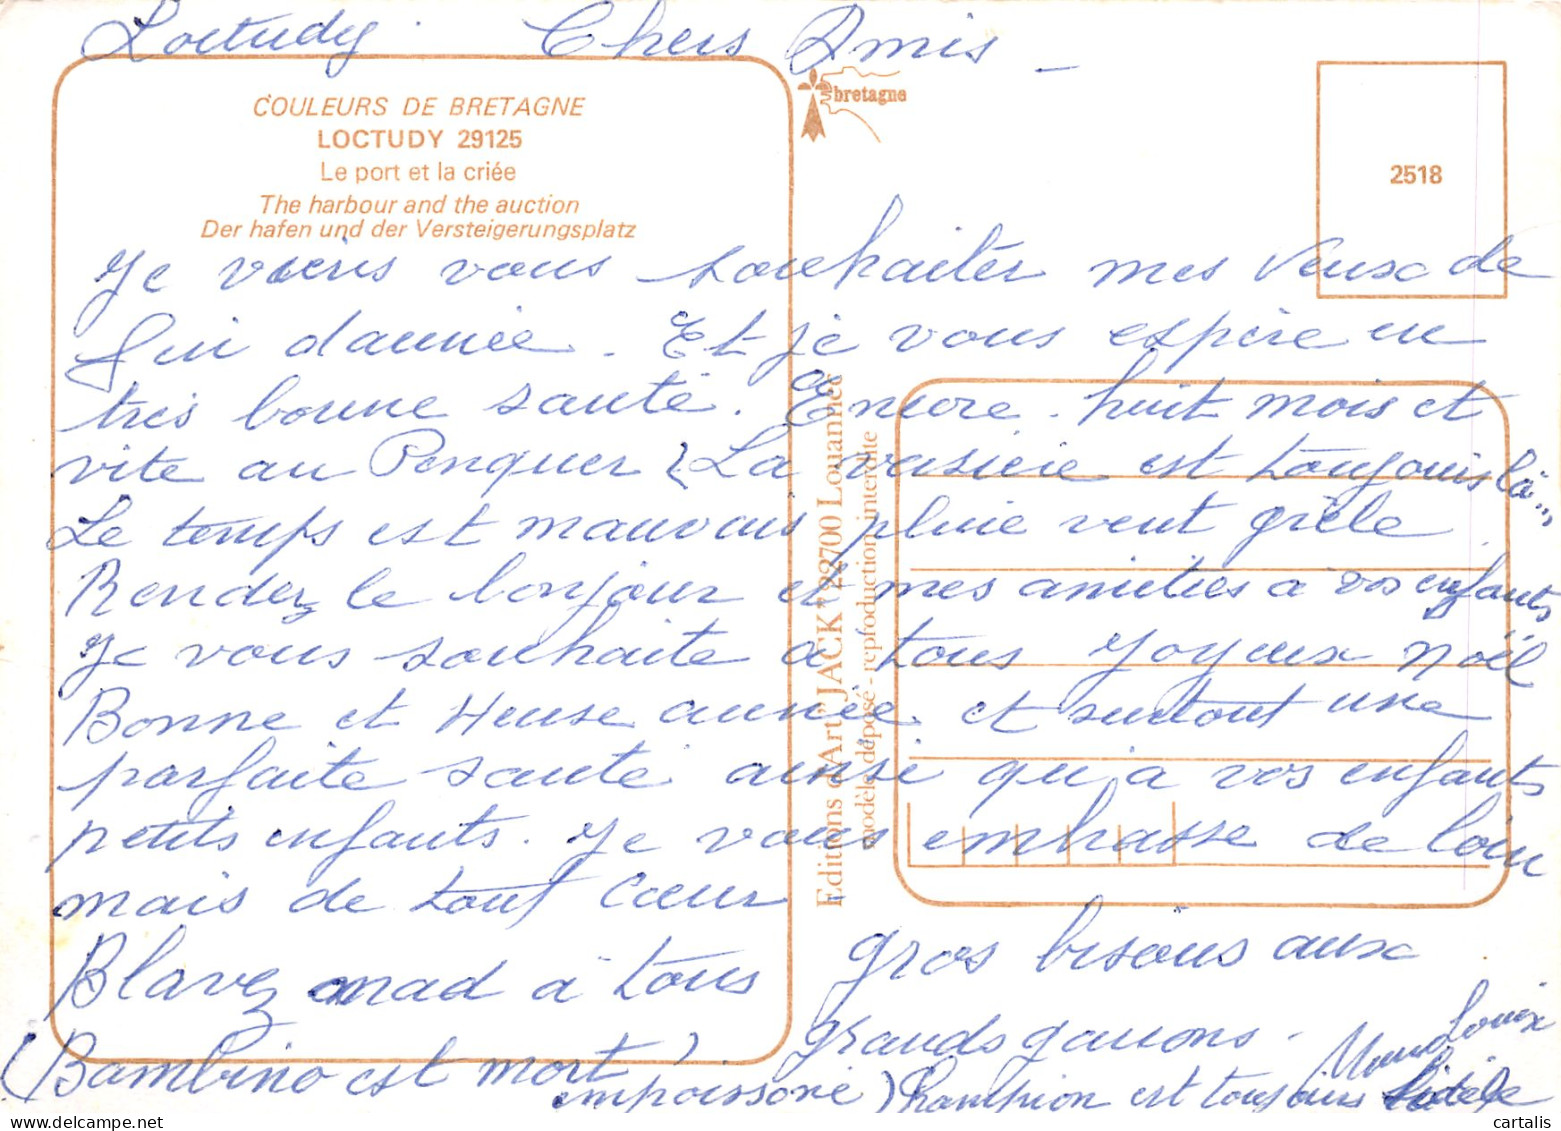 Loctudy. Chers Amis -
COULEURS DE BRETAGNE
LOCTUDY 29125
Le port et la criée
The harbour and the auction
Der hafen und der Versteigerungsplatz
bretagne
2518
Je viens vous souhaiter mes veux de
fin d'année. Et je vous espère en
très bonne santé. Encore huit mois et
vite au Penquer (La vasière est toujours là...
Le temps est mauvais pluie vent grêle
Rendez le bonjour et mes amitiés à vos enfants
Je vous souhaite à tous Joyeux Noël
Bonne et Heuse année et surtout une
parfaite santé ainsi qu'à vos enfants
petits enfants. Je vous embrasse de loin
mais de tout Cœur
Blavez mad à tous
gros bisous aux
grands garçons -
(Bambino est mort
empoissoné) Champion est toujours fidèle
Louix
Editions d'Art "JACK" 22700 Louannec
modèle déposé - reproduction interdite
cartalis